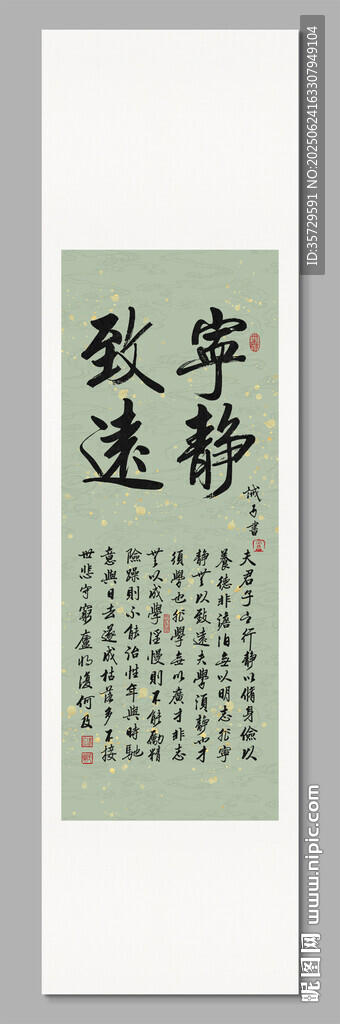 寧靜
致遠
誡子書
夫君子之行靜以脩身儉以
養德非澹泊無以明志非寧
靜無以致遠夫學須靜也才
須學也非學無以廣才非志
無以成學淫慢則不能勵精
險躁則不能治性年與時馳
意與日去遂成枯落多不接
世悲守窮廬將復何及
ID:35729591 NO:20250624163307949104
昵图网 www.nipic.com